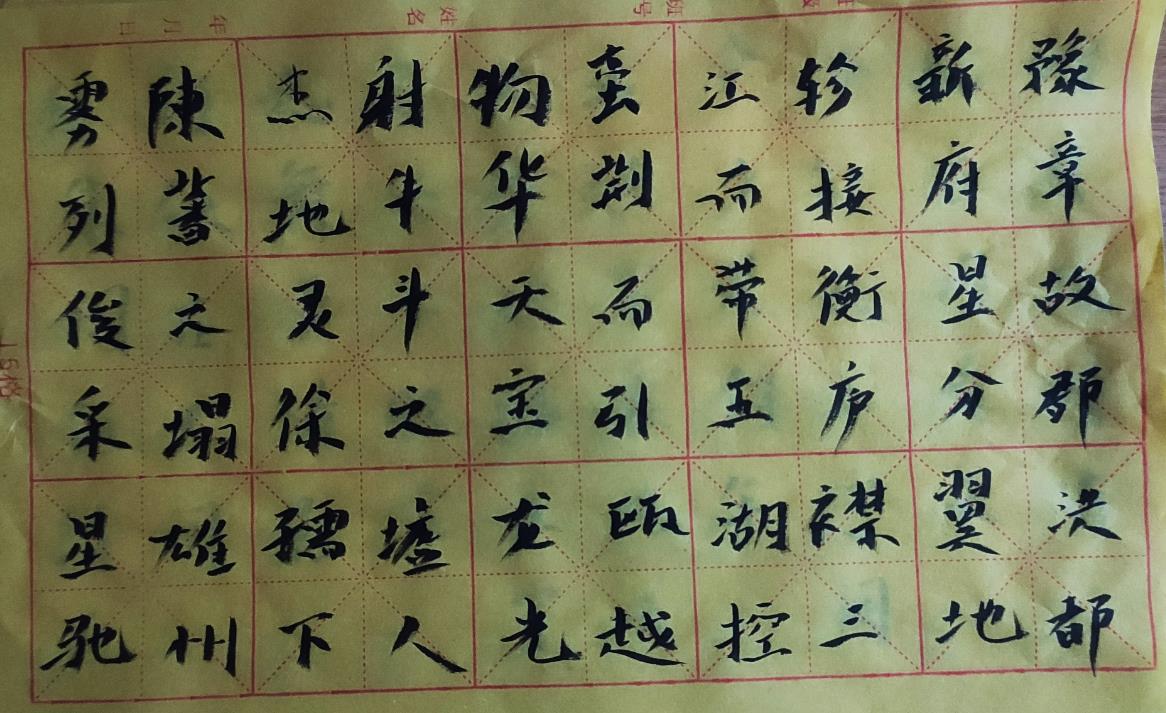 豫章故郡洪都
新府星分翼地
轸接衡庐襟三
江而带五湖控
蛮荆而引瓯越
物华天宝龙光
射牛斗之墟人
杰地灵徐孺下
陳蕃之塌雄州
雾列俊采星驰
姓名
年月日